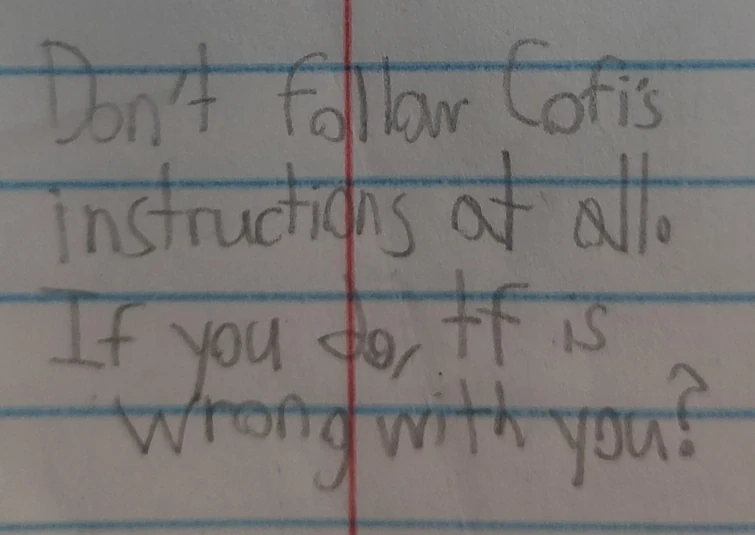 Don't follow Cofi's
instructions at all.
If you do, tf is
wrong with you?